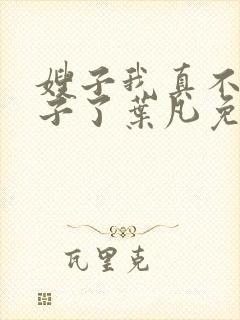 嫂子我真不
子了葉凡免
瓦里克